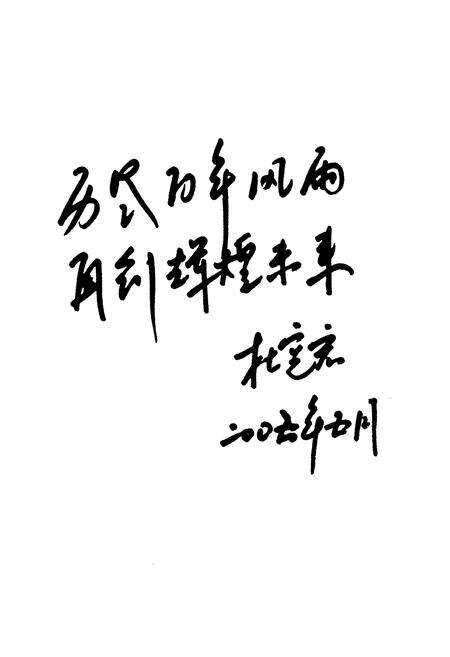 历尽百年风雨
再创辉煌未来
杜宽宏
二〇〇五年五月